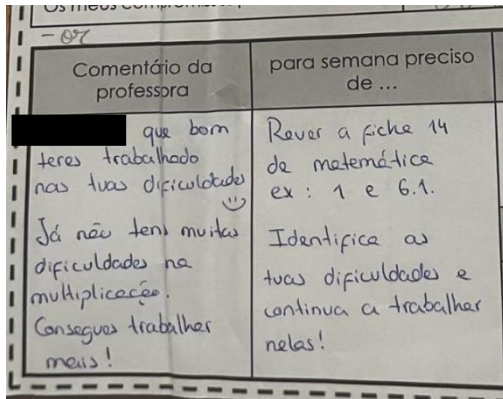 Os meus compromissos
- or
Comentáio da
professora
que bom
teres trabalhado
nas tuas dificuldades
Já não tens muitas
dificuldades na
multiplicação.
Consegues trabalhar
mais!
para semana preciso
de ...
Rever a ficha 14
de matemática
ex: 1 e 6.1.
Identifica as
tuas dificuldades e
continua a trabalhar
nelas!